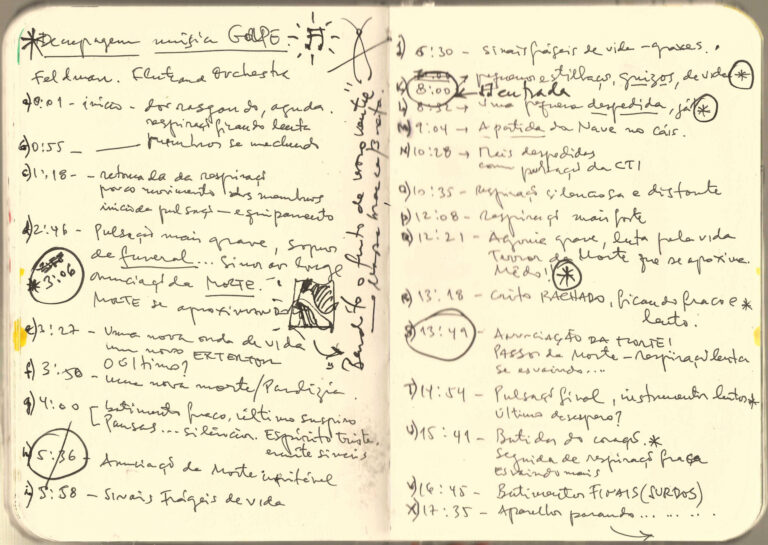 *Decupagem música GOLPE.
Feldman. Flute and Orchestra
a) 0:01 - início - dor rasgando, aguda.
respiraçã ficando lenta
b) 0:55 - membros se mechendo
c) 1:18 - retomada da respiraçã
pouco movimento dos membros
início da pulsaçã - equipamento
d) 2:46 - Pulsaçã mais grave, sopros
de funeral... Sinos ao longe
* 3:06 anunciaçã da MORTE.
MORTE se aproximando
e) 3:27 - Uma nova onda de vida
um novo EXTERTOR
O último?
f) 3:50 - uma nova morte/Paralizia.
g) 4:00 [batimento fraco, último suspiro
Pausas... silêncios. Espírito triste.
emite sinais
h) 5:36 - Anunciaçã da Morte
i) 5:58 - Sinais Frágeis de vida
Bendito o fruto do vosso ventre"
J) 6:30 - sinais frágeis de vida - graves.
pequenos estilhaço, guizos, de vida *
8:00 ← entrada
8:32 → Uma pequena despedida, já *
M) 9:04 → A partida da Nave no cáis.
N) 10:28 → Mais despedidas
com pulsaçã da CTI
O) 10:35 - Respiraçã silenciosa e distante
P) 12:08 - Respiraçã mais forte
Q) 12:21 - Agonia grave, luta pela vida
Terror da Morte que se aproxima.
Mêdo! *
R) 13:18 - Grito RACHADO, ficando fraco e *
lento.
S) 13:49 - ANUNCIAÇÃO DA MORTE!
PASSOS da Morte - respiraçã lenta
se esvaindo...
T) 14:54 - Pulsaçã final, instrumentos lentos *
último desespero?
U) 15:41 - Batidas do coraçã. *
Seguida de respiraçã fraca
esvaindo mais
V) 16:45 - Batimentos FINAIS (SURDOS)
X) 17:35 - Aparelho parando... ... ... ...